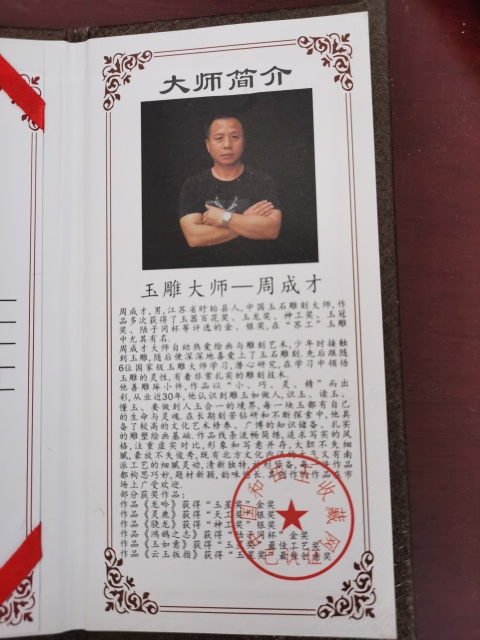 大师简介
玉雕大师—周成才
周成才,男,江苏省盱眙县人,中国玉石雕刻大师,作
品多次获得了玉器百花奖、玉龙奖、神工奖、玉冠
奖、陆子冈杯等评选的金、银奖,在“苏工”玉雕
中尤其有名。
周成才大师自幼热爱绘画与雕刻艺术,少年时接触
到玉雕,随后便深深地喜爱上了玉石雕刻.先后跟随
6位国家级玉雕大师学习,潜心研究,在学习中领悟
玉雕的灵性,有着非常扎实的雕刻技术。
他善雕琢小件,作品以“小、巧、灵、精”而出
彩,从业近30年,他认识到雕玉如做人,识玉、读玉、
懂玉、要做到人玉合一的境界,每一块玉都有自己
的生命与灵魂.在长期刻苦钻研和不断探索中,他具
备了较高的文化艺术修养、广博的知识储备、扎实
的雕塑绘画基础.作品线条流畅简练,追求写实的风
格,注重虚实对比,形象和写意并存,大胆不失细
腻,豪放不失俊秀,既有北方文化的大气又有南
派工艺的细腻灵动,清新独特,形备,每件作品
都构思巧妙,题材新颖,韵味悠长.作品在市
场上广受欢迎.
部分获奖作品:
作品《龙吟》获得“玉星奖”金奖
作品《灵鹿》获得“天工奖”银奖
作品《骁龙》获得“神工奖”银奖
作品《鸿鹄之志》获得“陆子冈杯”金奖
作品《玉如意》获得“玉奖”最佳工艺奖
作品《云玉扳指》获得“玉星奖”最佳创意奖
国和收藏网